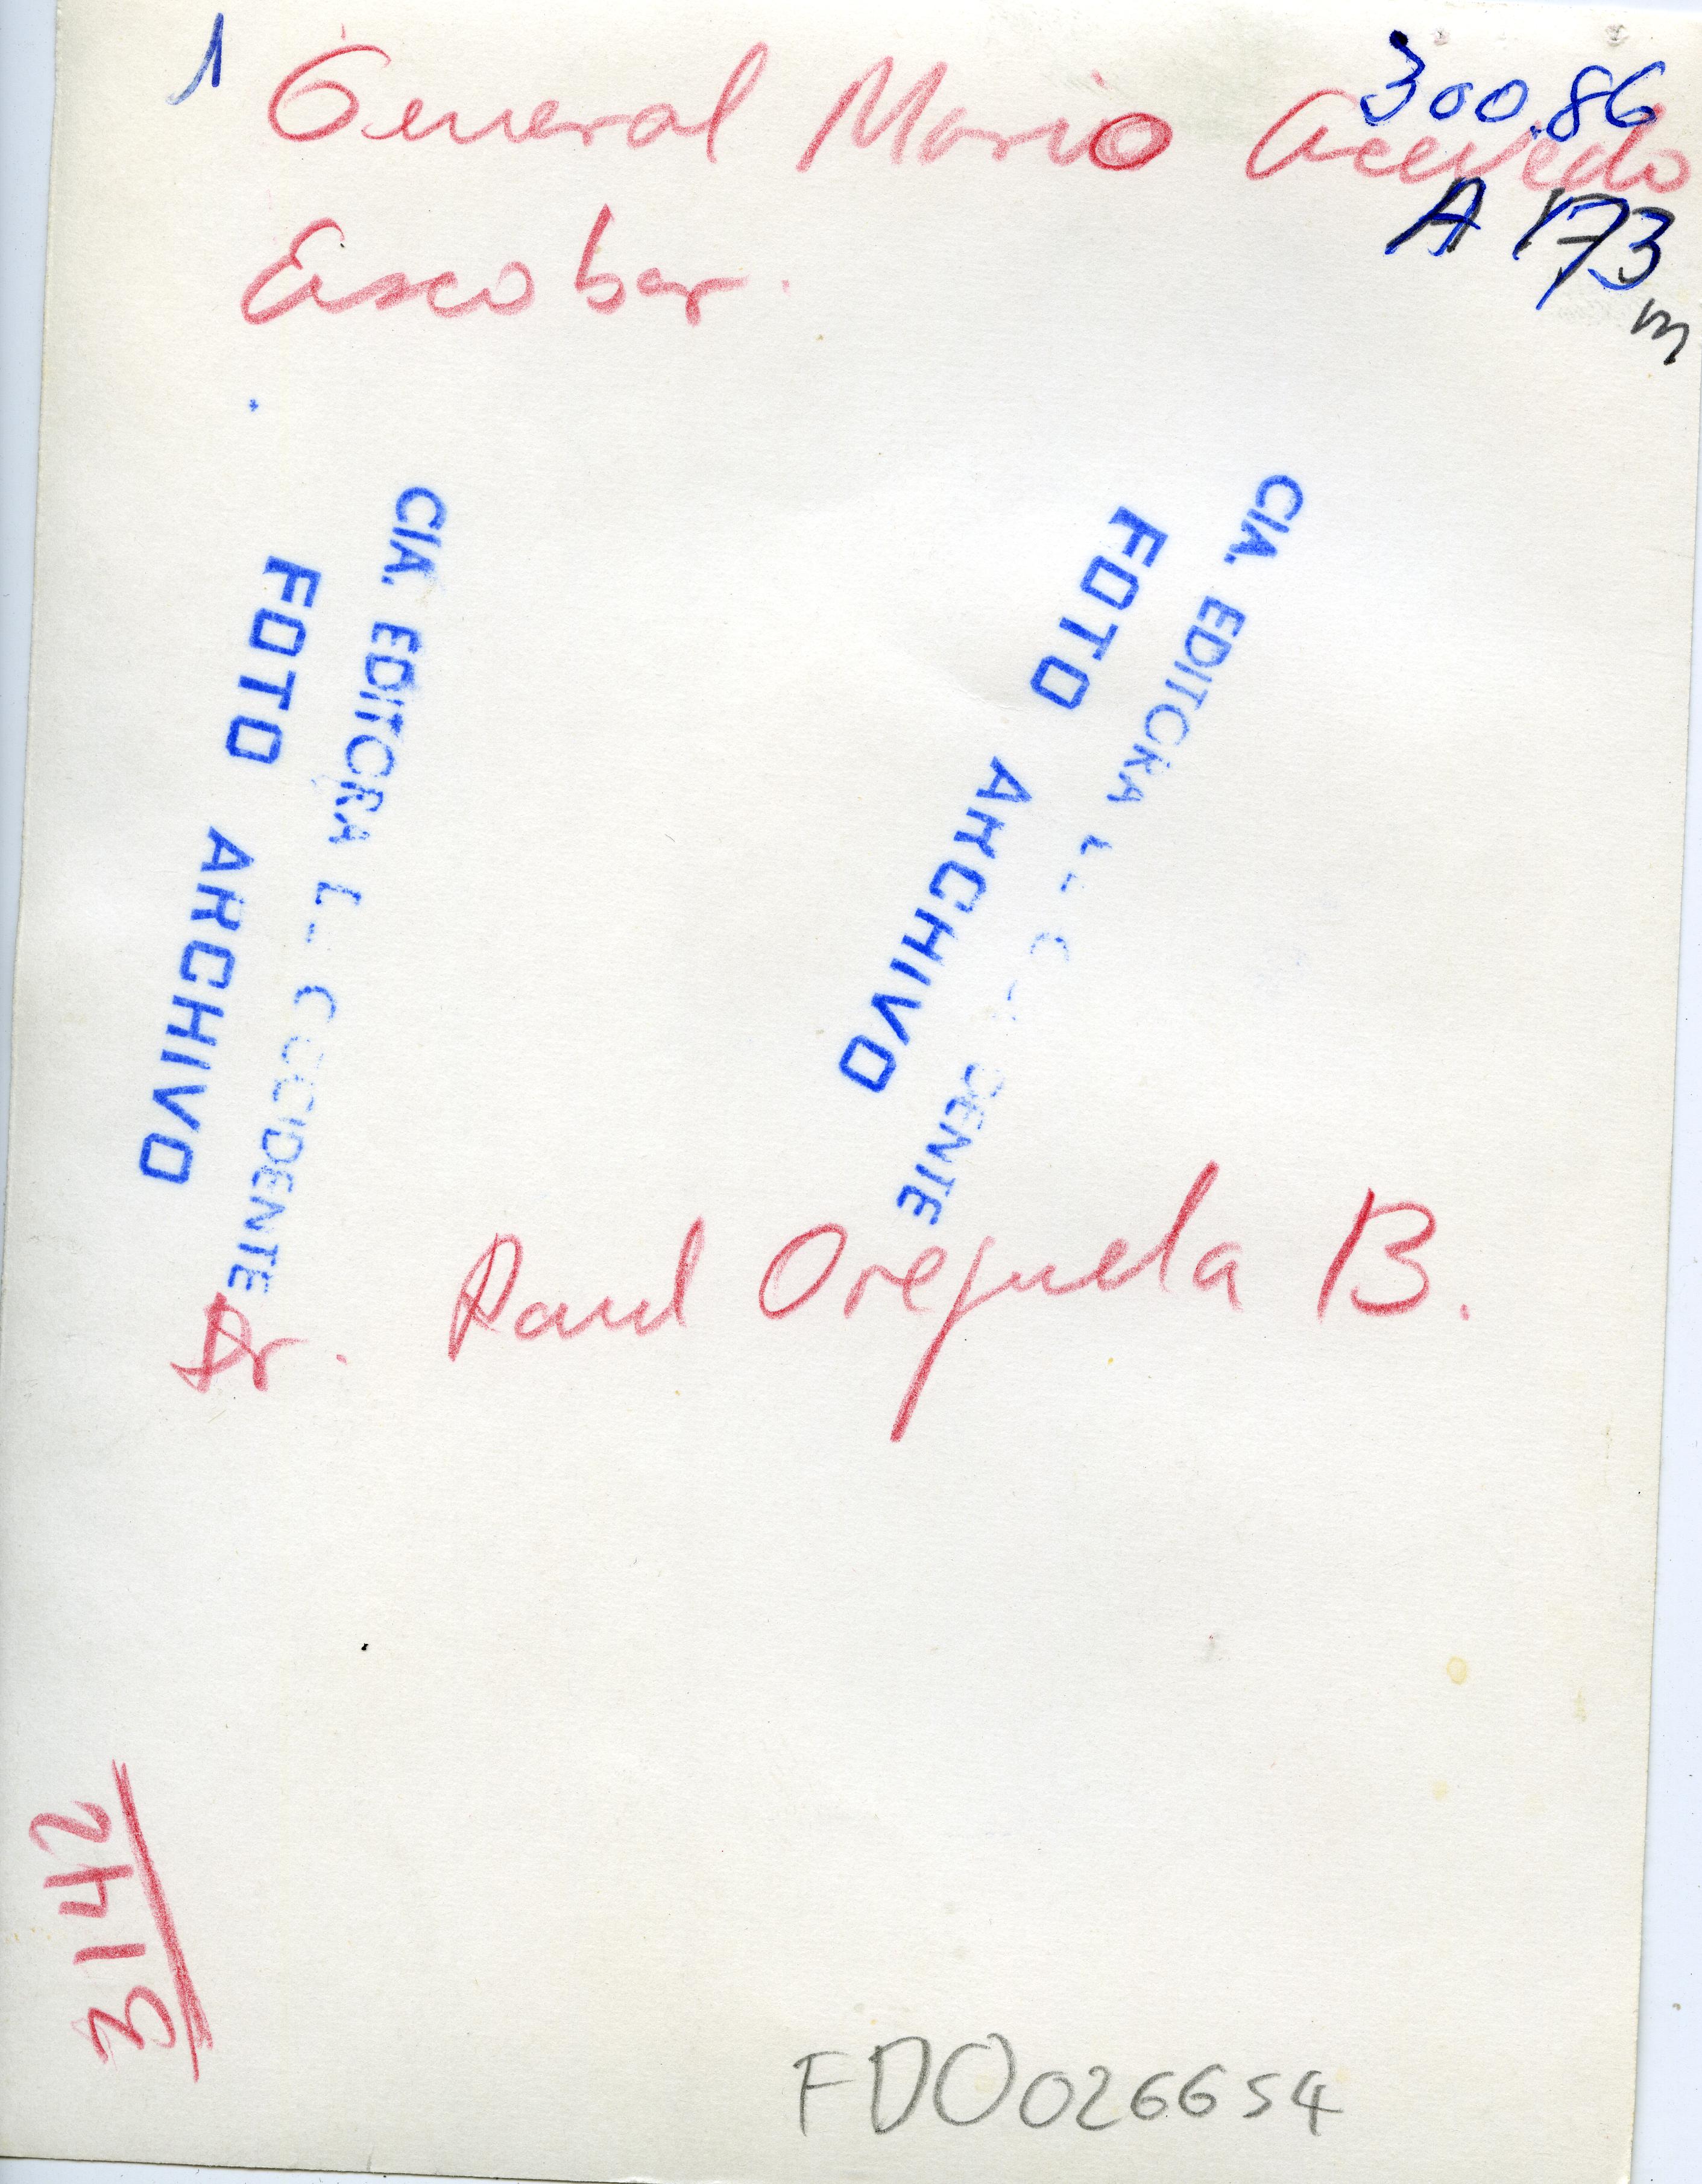 1
General Mario Acevedo
300.86
A 173
m
Escobar.
CIA. EDITORA DE OCCIDENTE
FOTO ARCHIVO
CIA. EDITORA DE OCCIDENTE
FOTO ARCHIVO
Dr. Raul Orejuela B.
3142
FDO026654